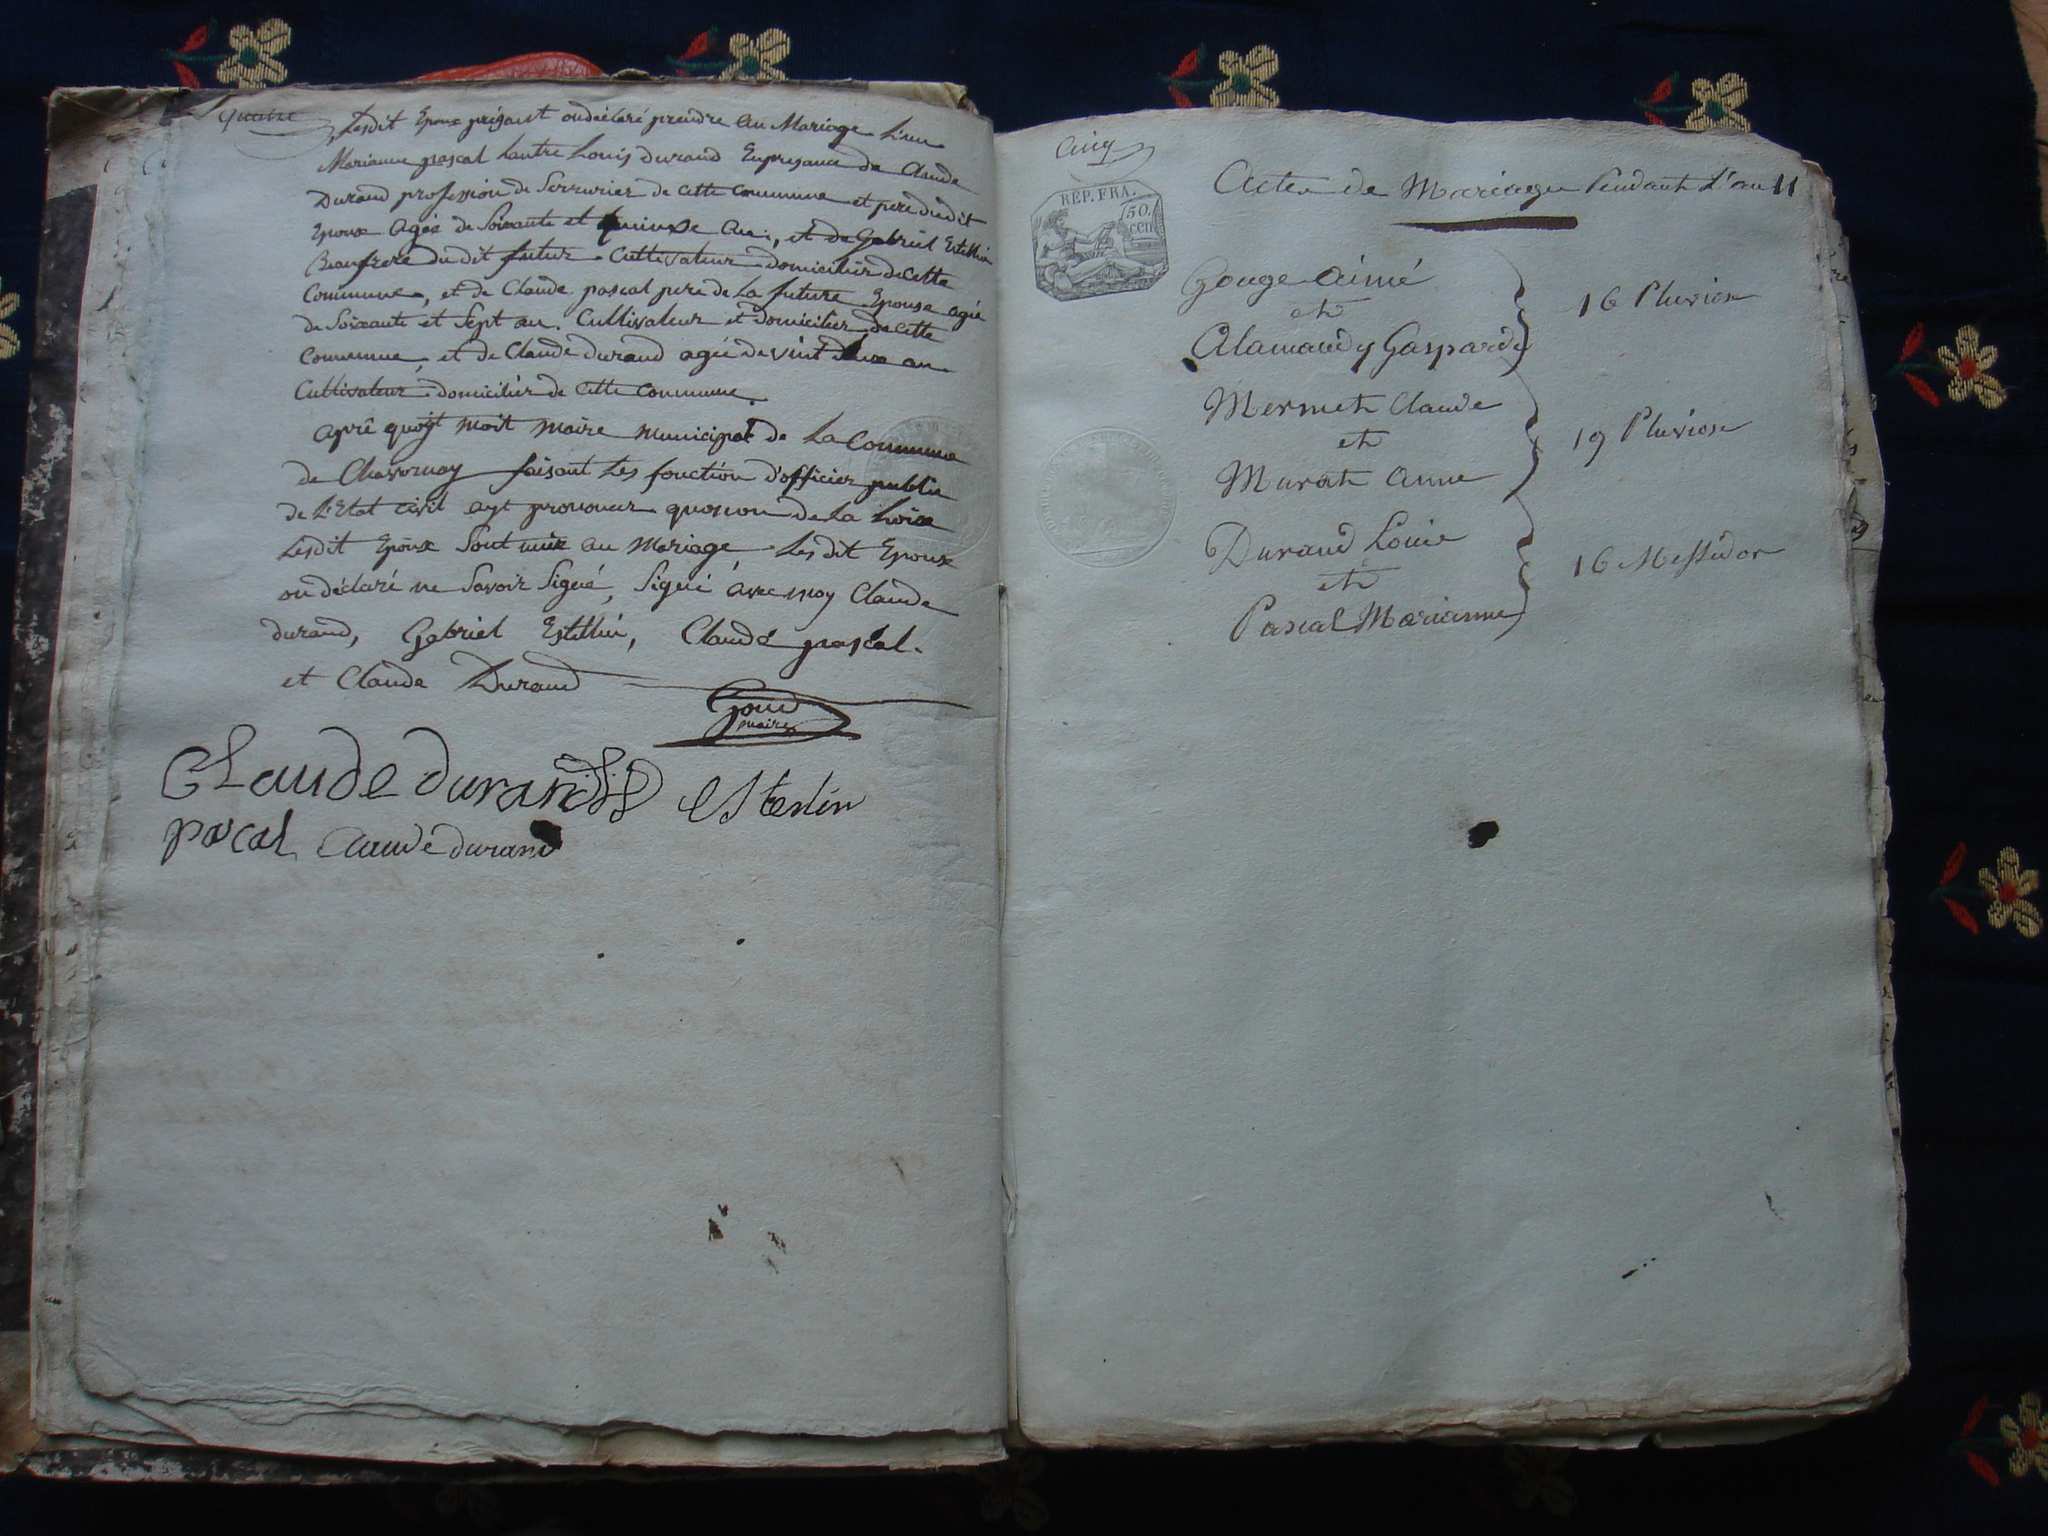 quatre
Lesdit Epoux présant on déclaré prendre au Mariage L'un
Marianne pascal Lautre Louis durand En presance de Claude
Durand profession de Serrurier de cette commune et pere dudit
Epoux Agée de Soixante et quinze an, et de Gabriel Estellin
Beaufrere du dit futur Cultivateur domicilier de Cette
Commune, et de Claude pascal pere de La future Epouse agée
de Soixante et Sept an. Cultivateur et domicilier de cette
Commune, et de Claude durand agée de vint deux an
Cultivateur domicilier de cette commune.
aprê quoy moit maire municipal de La Commune
de Chavornay faisant Les fonction d'officier public
de L'Etat civil ayt prononcer au nom de La Loix
Lesdit Epoux Sont unix au Mariage. Les dit Epoux
on déclaré ne Savoir Signé, Signé avec moy Claude
durand, Gabriel Estellin, Claude pascal.
et Claude Durand
maire
CLaude durand Estenlin
pascal Claude durand
Cinq
REP. FRA.
50.
cen
Actes de Mariages Pendant L'an 11
Gouge aimé
et
Alamandy Gasparde
16 Pluviose
Mermet Claude
et
Murat Anne
19 Pluviose
Durand Louis
et
Pascal Marianne
16 Messidor